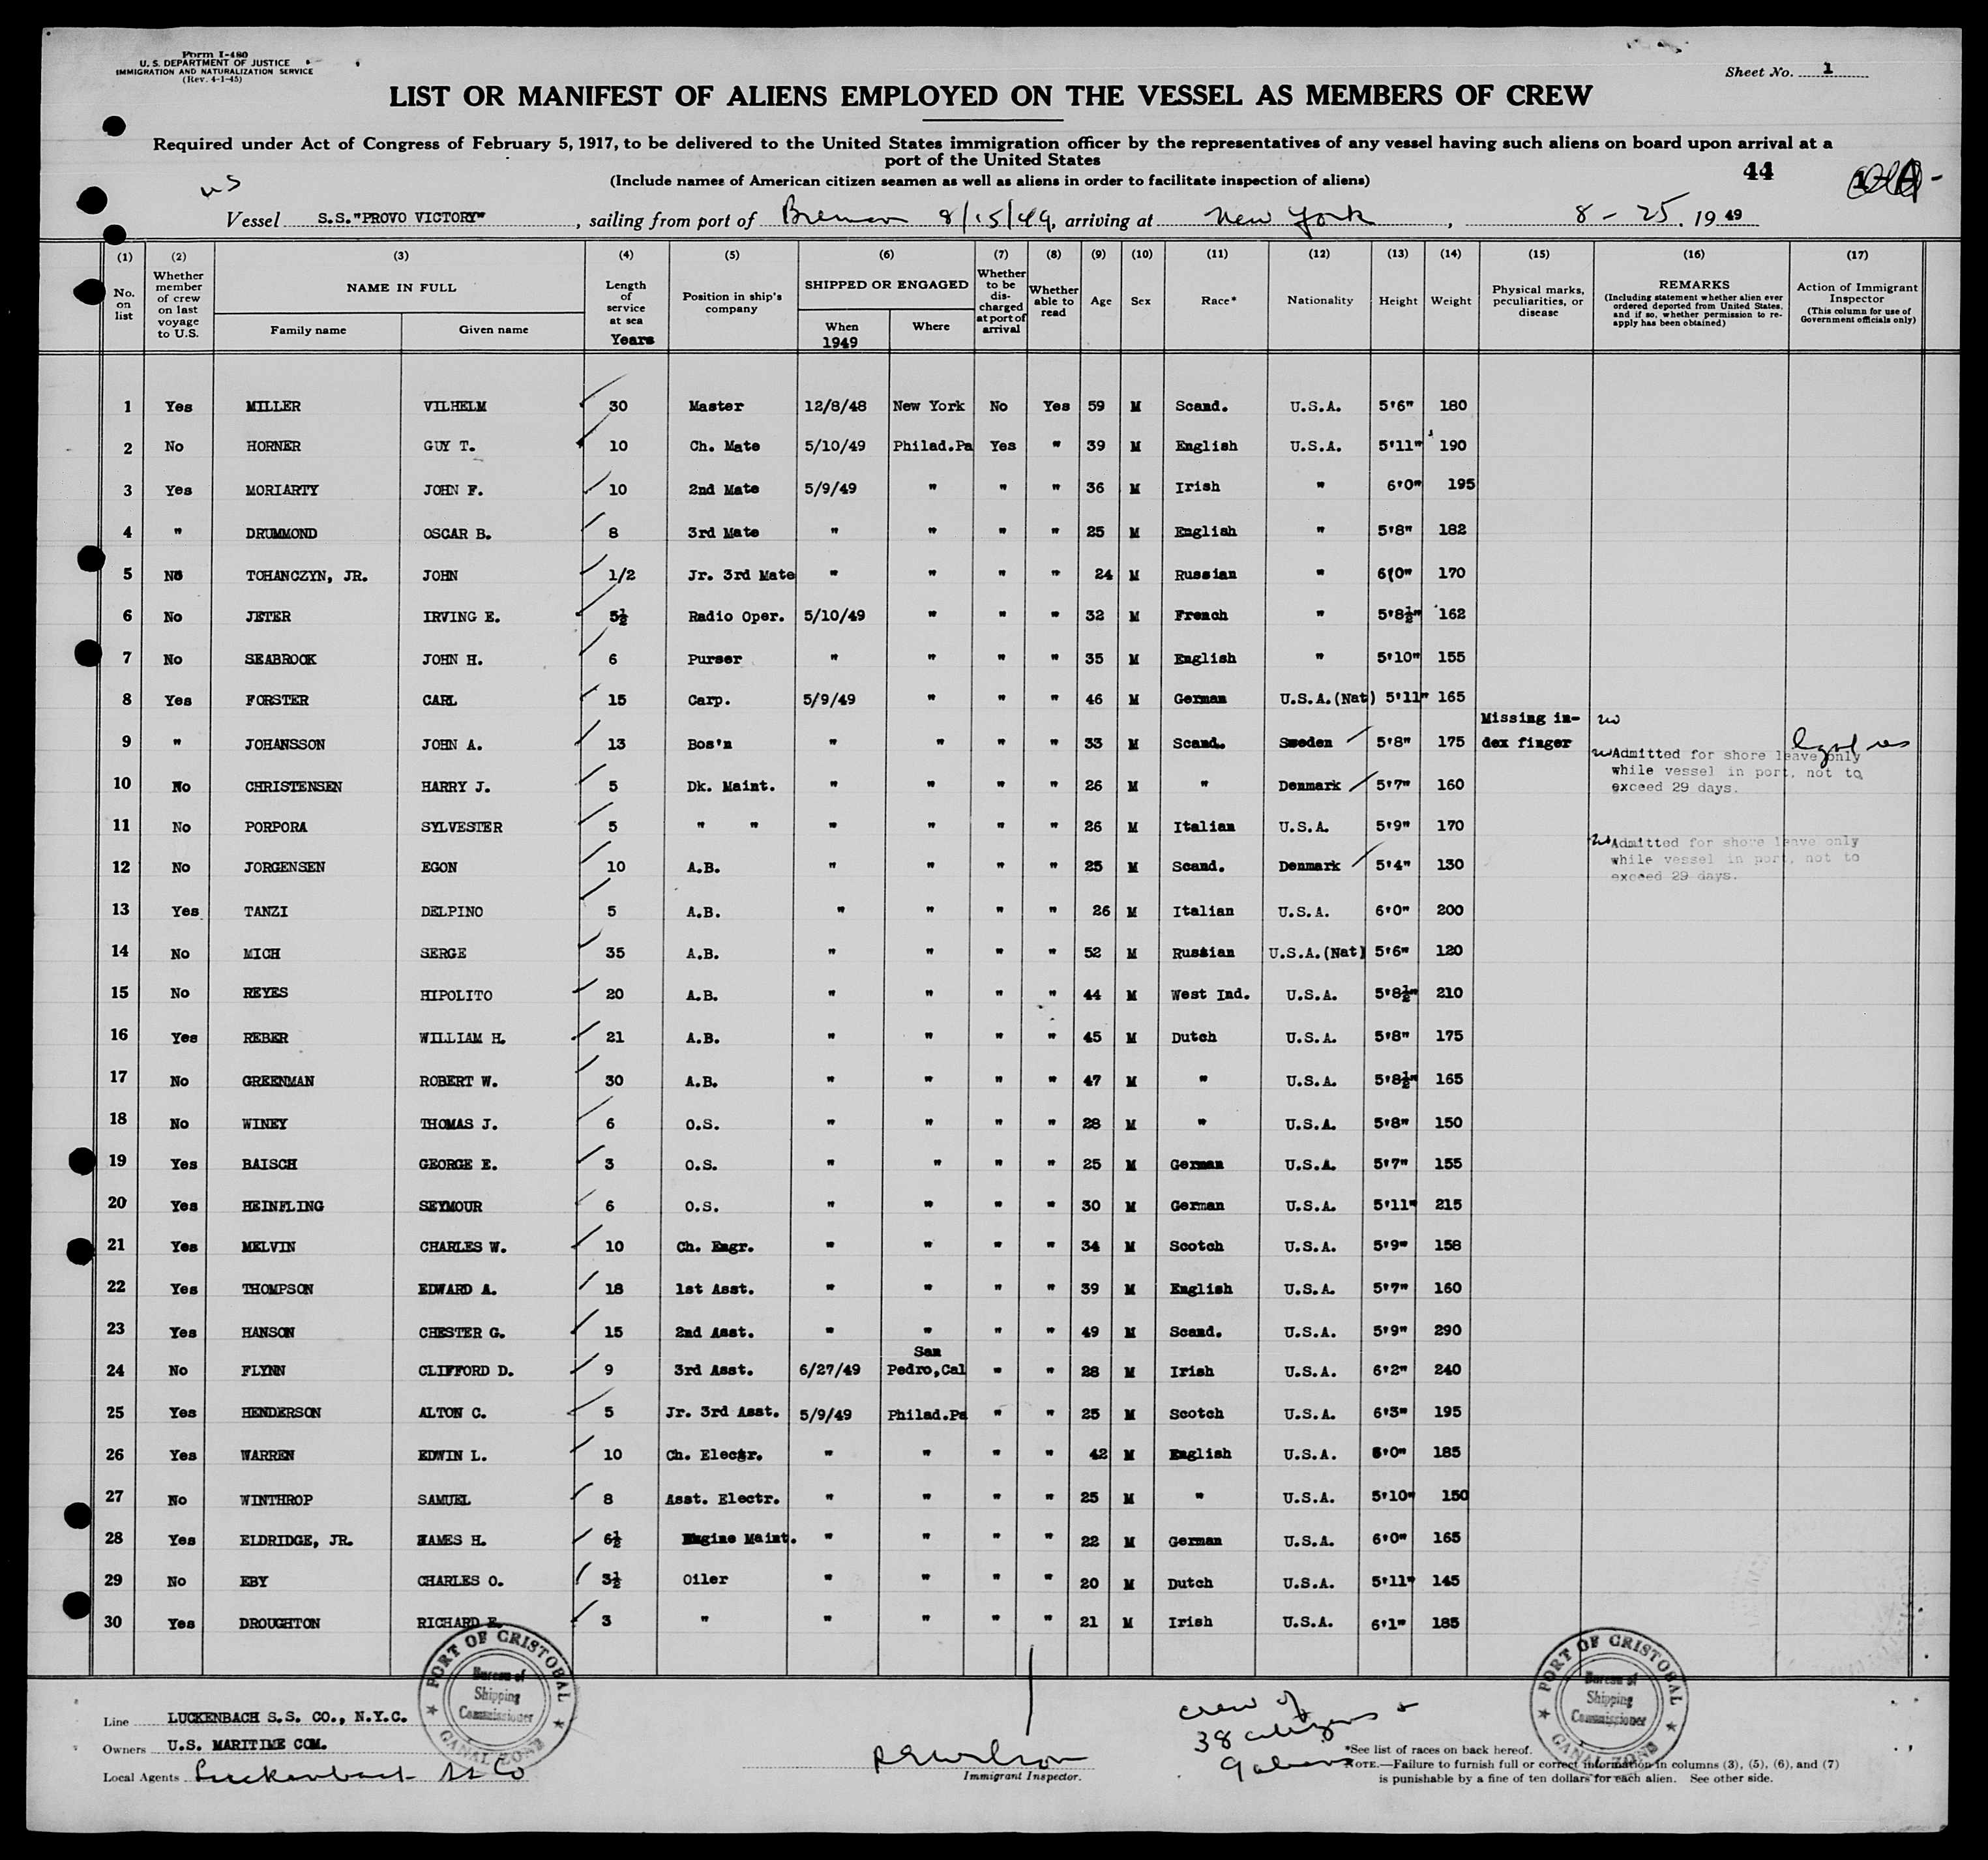 Form I-480
U. S. DEPARTMENT OF JUSTICE
IMMIGRATION AND NATURALIZATION SERVICE
(Rev. 4-1-45)
Sheet No. 1
LIST OR MANIFEST OF ALIENS EMPLOYED ON THE VESSEL AS MEMBERS OF CREW
Required under Act of Congress of February 5, 1917, to be delivered to the United States immigration officer by the representatives of any vessel having such aliens on board upon arrival at a
port of the United States
(Include names of American citizen seamen as well as aliens in order to facilitate inspection of aliens)
44
us
Vessel S.S."PROVO VICTORY", sailing from port of Bremen 8/15/49, arriving at New York, 8-25, 1949
(1) No. on list
(2) Whether member of crew on last voyage to U.S.
(3) NAME IN FULL Family name Given name
(4) Length of service at sea Years
(5) Position in ship's company
(6) SHIPPED OR ENGAGED When 1949 Where
(7) Whether to be discharged at port of arrival
(8) Whether able to read
(9) Age
(10) Sex
(11) Race*
(12) Nationality
(13) Height
(14) Weight
(15) Physical marks, peculiarities, or disease
(16) REMARKS (Including statement whether alien ever ordered deported from United States, and if so, whether permission to re-apply has been obtained)
(17) Action of Immigrant Inspector (This column for use of Government officials only)
1 Yes MILLER VILHELM 30 Master 12/8/48 New York No Yes 59 M Scand. U.S.A. 5'6" 180
2 No HORNER GUY T. 10 Ch. Mate 5/10/49 Philad.Pa Yes " 39 M English U.S.A. 5'11" 190
3 Yes MORIARTY JOHN F. 10 2nd Mate 5/9/49 " " " 36 M Irish " 6'0" 195
4 " DRUMMOND OSCAR B. 8 3rd Mate " " " " 25 M English " 5'8" 182
5 No TOHANCZYN, JR. JOHN 1/2 Jr. 3rd Mate " " " " 24 M Russian " 6'0" 170
6 No JETER IRVING E. 5½ Radio Oper. 5/10/49 " " " 32 M French " 5'8½" 162
7 No SEABROOK JOHN H. 6 Purser " " " " 35 M English " 5'10" 155
8 Yes FORSTER CARL 15 Carp. 5/9/49 " " " 46 M German U.S.A.(Nat) 5'11" 165
9 " JOHANSSON JOHN A. 13 Bos'n " " " " 33 M Scand. Sweden 5'8" 175 Missing index finger
10 No CHRISTENSEN HARRY J. 5 Dk. Maint. " " " " 26 M " Denmark 5'7" 160 Admitted for shore leave only while vessel in port, not to exceed 29 days.
11 No PORPORA SYLVESTER 5 " " " " " " 26 M Italian U.S.A. 5'9" 170
12 No JORGENSEN EGON 10 A.B. " " " " 25 M Scand. Denmark 5'4" 130 Admitted for shore leave only while vessel in port, not to exceed 29 days.
13 Yes TANZI DELPINO 5 A.B. " " " " 26 M Italian U.S.A. 6'0" 200
14 No MICH SERGE 35 A.B. " " " " 52 M Russian U.S.A.(Nat) 5'6" 120
15 No REYES HIPOLITO 20 A.B. " " " " 44 M West Ind. U.S.A. 5'8½" 210
16 Yes REBER WILLIAM H. 21 A.B. " " " " 45 M Dutch U.S.A. 5'8" 175
17 No GREENMAN ROBERT W. 30 A.B. " " " " 47 M " U.S.A. 5'8½" 165
18 No WINEY THOMAS J. 6 O.S. " " " " 28 M " U.S.A. 5'8" 150
19 Yes BAISCH GEORGE E. 3 O.S. " " " " 25 M German U.S.A. 5'7" 155
20 Yes HEINFLING SEYMOUR 6 O.S. " " " " 30 M German U.S.A. 5'11" 215
21 Yes MELVIN CHARLES W. 10 Ch. Engr. " " " " 34 M Scotch U.S.A. 5'9" 158
22 Yes THOMPSON EDWARD A. 18 1st Asst. " " " " 39 M English U.S.A. 5'7" 160
23 Yes HANSON CHESTER G. 15 2nd Asst. " " " " 49 M Scand. U.S.A. 5'9" 290
24 No FLYNN CLIFFORD D. 9 3rd Asst. 6/27/49 San Pedro,Cal " " 28 M Irish U.S.A. 6'2" 240
25 Yes HENDERSON ALTON C. 5 Jr. 3rd Asst. 5/9/49 Philad.Pa " " 25 M Scotch U.S.A. 6'3" 195
26 Yes WARREN EDWIN L. 10 Ch. Electr. " " " " 42 M English U.S.A. 6'0" 185
27 No WINTHROP SAMUEL 8 Asst. Electr. " " " " 25 M " U.S.A. 5'10" 150
28 Yes ELDRIDGE, JR. JAMES H. 6½ Engine Maint. " " " " 22 M German U.S.A. 6'0" 165
29 No EBY CHARLES O. 3½ Oiler " " " " 20 M Dutch U.S.A. 5'11" 145
30 Yes DROUGHTON RICHARD E. 3 " " " " " 21 M Irish U.S.A. 6'1" 185
PORT OF CRISTOBAL
Bureau of
Shipping
Commissioner
CANAL ZONE
PORT OF CRISTOBAL
Bureau of
Shipping
Commissioner
CANAL ZONE
Line LUCKENBACH S.S. CO., N.Y.C.
Owners U.S. MARITIME COM.
Local Agents Luckenbach SS Co
Immigrant Inspector.
crew of
38 citizens +
9 aliens
*See list of races on back hereof.
NOTE.—Failure to furnish full or correct information in columns (3), (5), (6), and (7)
is punishable by a fine of ten dollars for each alien. See other side.